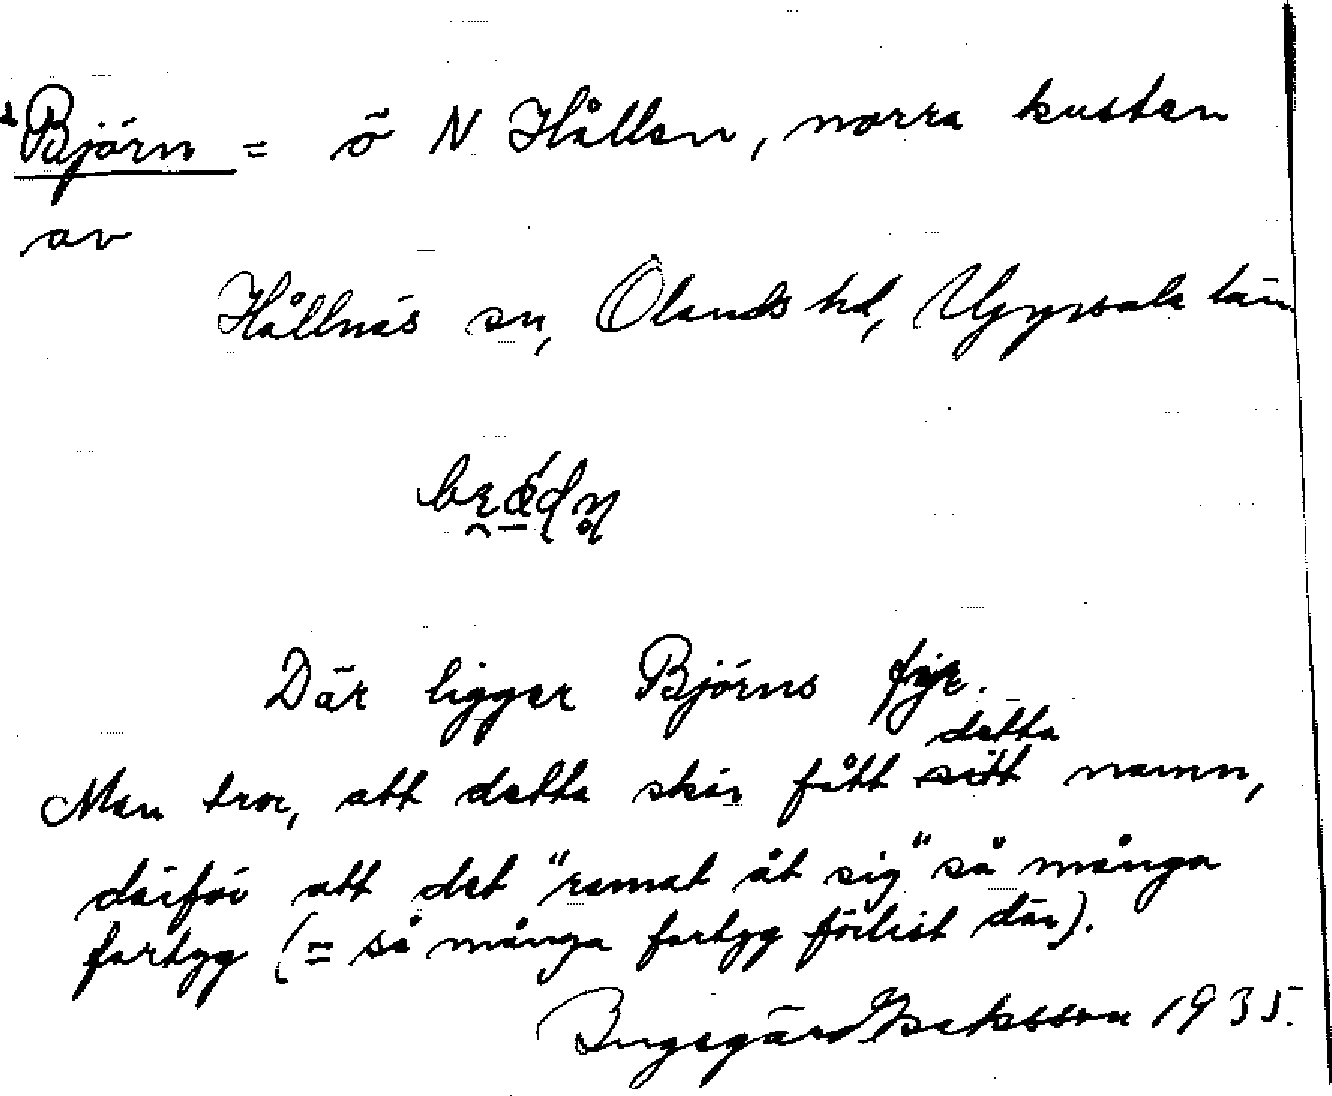 Björn = ö N Hållen, norra kusten
av
Hållnäs sn, Olands hd, Uppsala län
Där ligger Björns fyr.
detta
Man tror, att detta skär fått sitt namn,
därför att det "ramat åt sig" så många
fartyg (= så många fartyg förlist där).
Ingegärd Isaksson 1935.